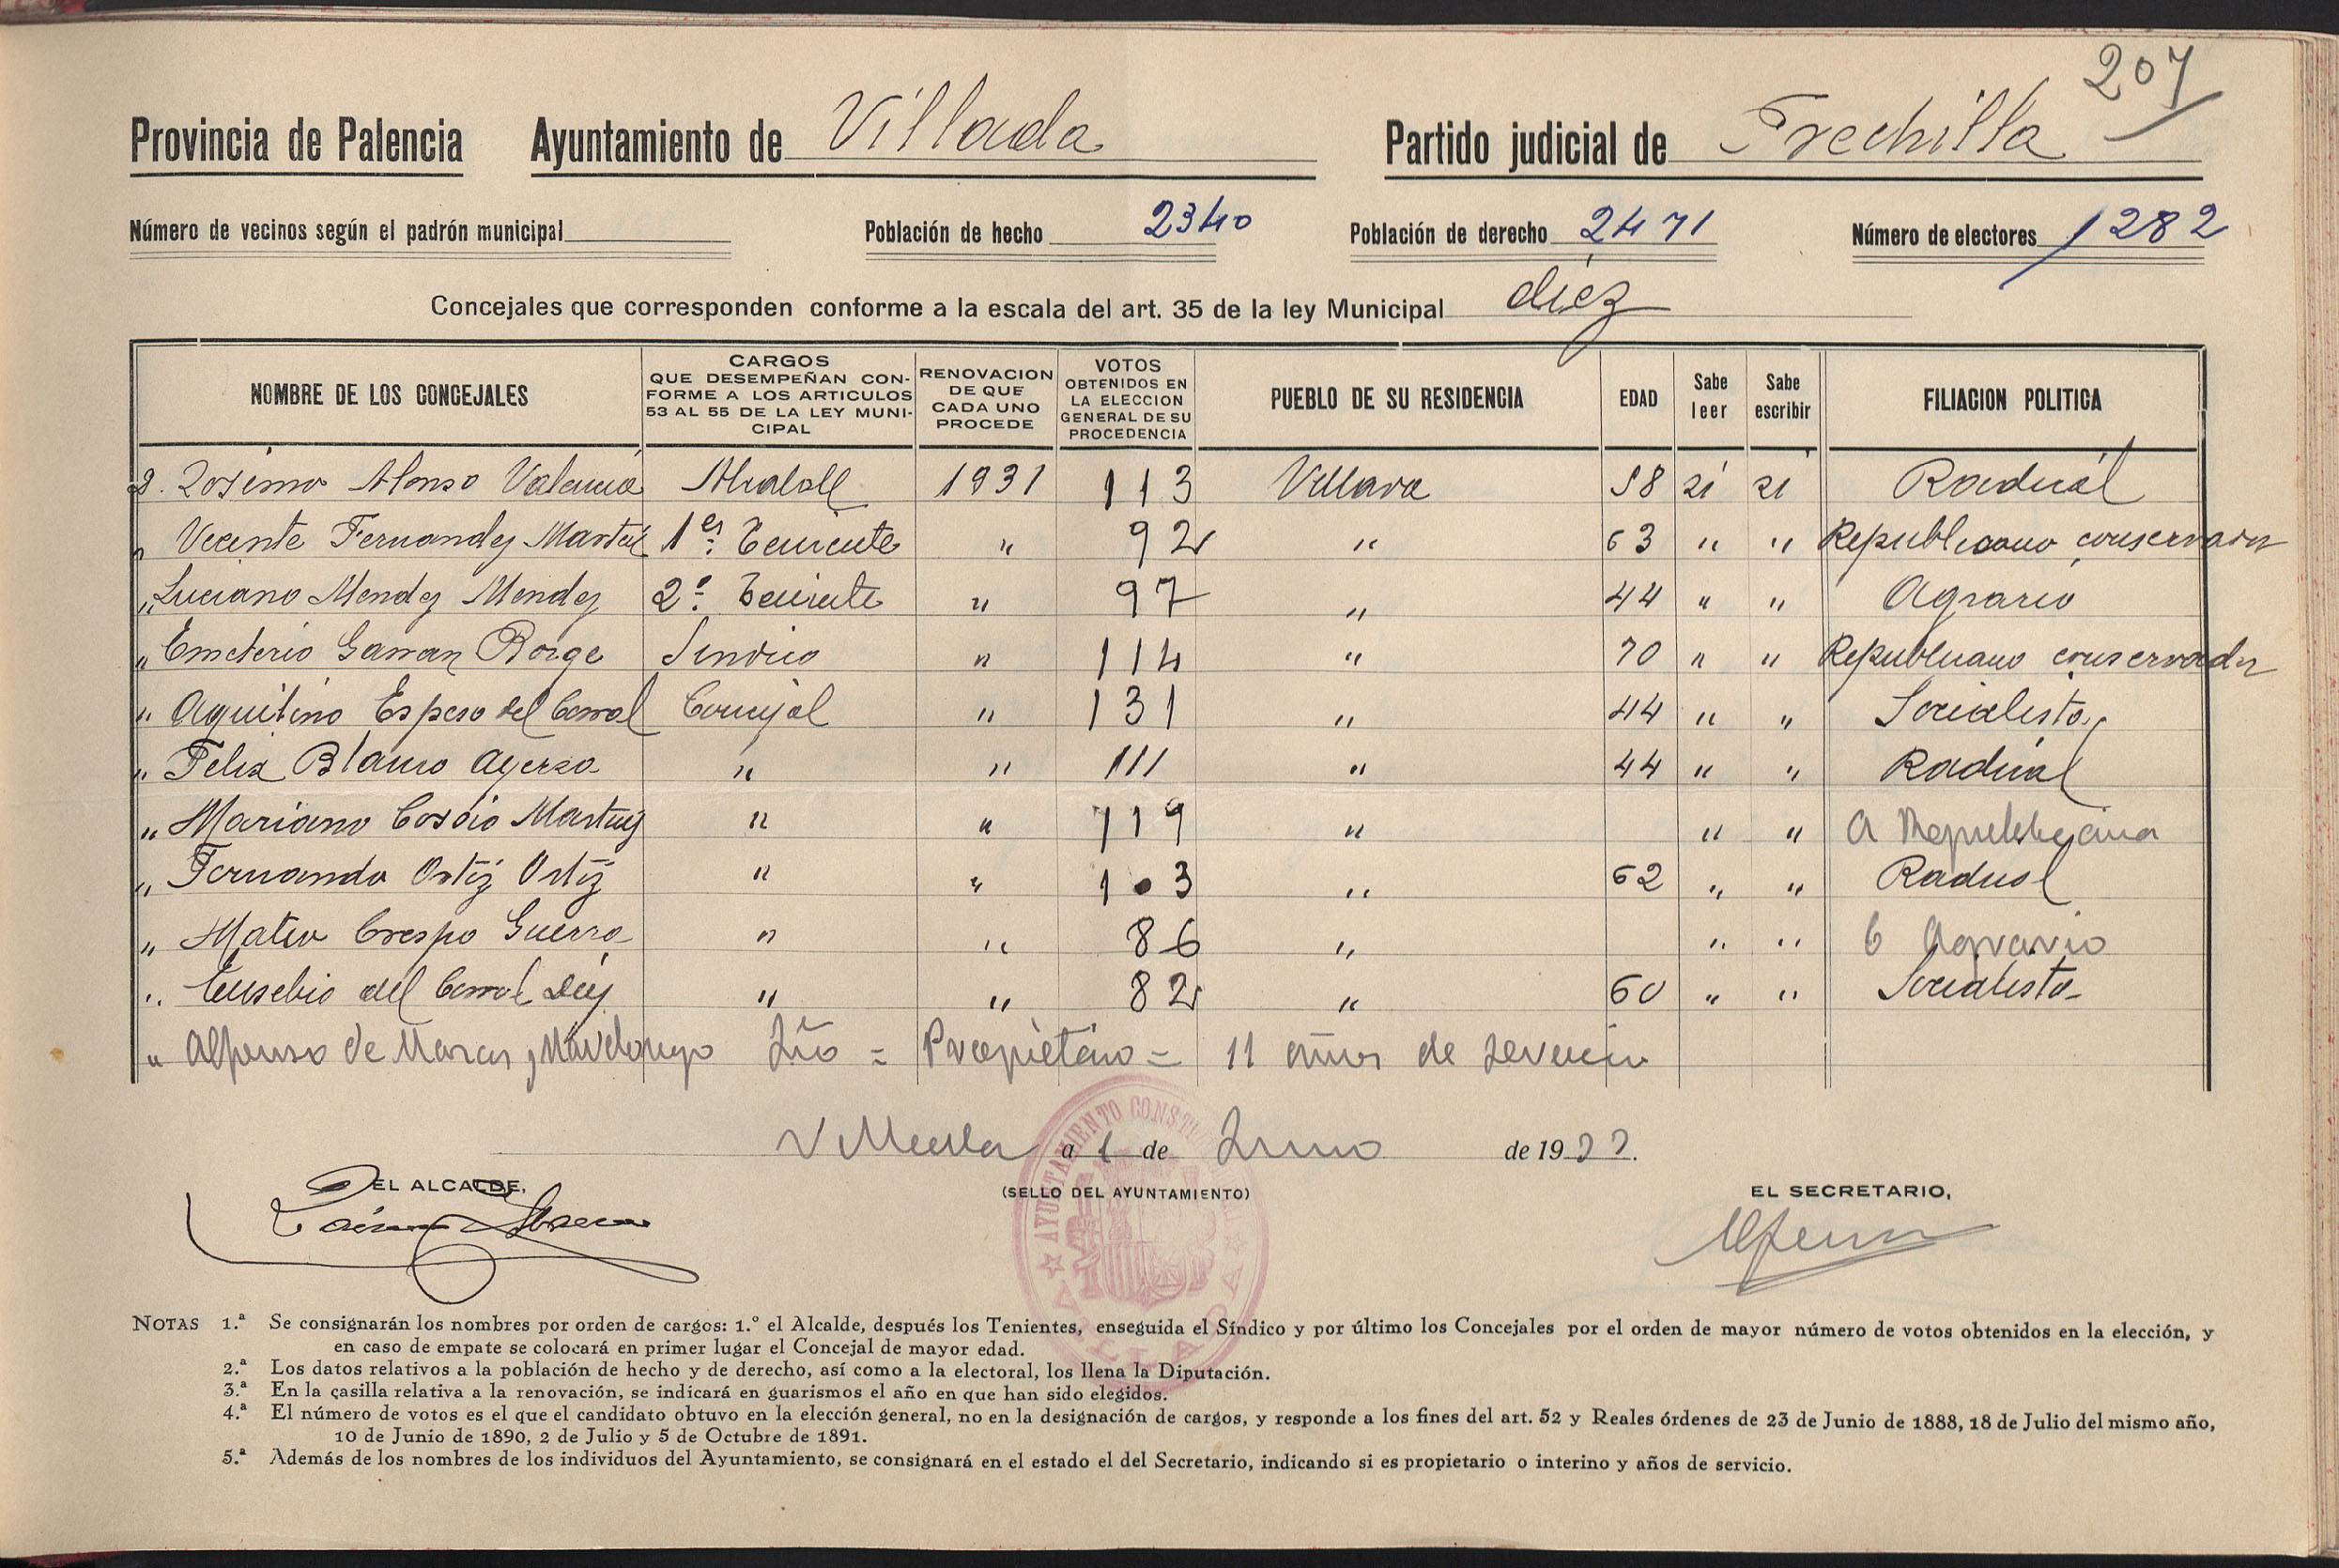 207
Provincia de Palencia Ayuntamiento de Villada Partido judicial de Frechilla
Número de vecinos según el padrón municipal Población de hecho 2340 Población de derecho 2471 Número de electores 1282
Concejales que corresponden conforme a la escala del art. 35 de la ley Municipal diez
NOMBRE DE LOS CONCEJALES
CARGOS
QUE DESEMPEÑAN CON-
FORME A LOS ARTICULOS
53 AL 55 DE LA LEY MUNI-
CIPAL
RENOVACION
DE QUE
CADA UNO
PROCEDE
VOTOS
OBTENIDOS EN
LA ELECCION
GENERAL DE SU
PROCEDENCIA
PUEBLO DE SU RESIDENCIA
EDAD
Sabe
leer
Sabe
escribir
FILIACION POLITICA
D. Zosimo Alonso Valencia Alcalde 1931 113 Villada 58 si si Radical
" Vicente Fernandez Martin 1er Teniente " 92 " 63 " " Republicano conservador
" Luciano Mendez Mendez 2º Teniente " 97 " 44 " " Agrario
" Emeterio Garran Borge Sindico " 114 " 70 " " Republicano conservador
" Aquilino Espeso del Corral Concejal " 131 " 44 " " Socialista
" Felix Blanco Ayerza " " 111 " 44 " " Radical
" Mariano Cossio Martinez " " 119 " " " A Republicana
" Fernando Ortiz Ortiz " " 103 " 62 " " Radical
" Mateo Crespo Guerra " " 86 " " " Agrario
" Eusebio del Corral Diez " " 82 " 60 " " Socialista
" Alfonso de Marcos y Srio = Propietario = 11 años de servicio
Villada a 1 de Junio de 1933.
EL ALCALDE,
(SELLO DEL AYUNTAMIENTO)
EL SECRETARIO,
AYUNTAMIENTO CONSTITUCIONAL
VILLADA
NOTAS 1.ª Se consignarán los nombres por orden de cargos: 1.º el Alcalde, después los Tenientes, enseguida el Síndico y por último los Concejales por el orden de mayor número de votos obtenidos en la elección, y
en caso de empate se colocará en primer lugar el Concejal de mayor edad.
2.ª Los datos relativos a la población de hecho y de derecho, así como a la electoral, los llena la Diputación.
3.ª En la casilla relativa a la renovación, se indicará en guarismos el año en que han sido elegidos.
4.ª El número de votos es el que el candidato obtuvo en la elección general, no en la designación de cargos, y responde a los fines del art. 52 y Reales órdenes de 23 de Junio de 1888, 18 de Julio del mismo año,
10 de Junio de 1890, 2 de Julio y 5 de Octubre de 1891.
5.ª Además de los nombres de los individuos del Ayuntamiento, se consignará en el estado el del Secretario, indicando si es propietario o interino y años de servicio.